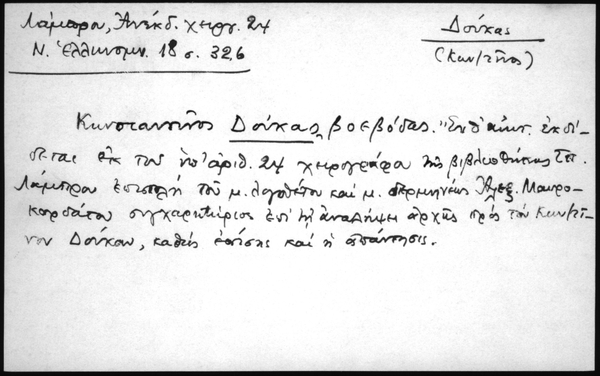 Λάμπρου, Ἀνέκδ. χειργ. 24
Ν. Ἑλληνομν. 18 σ. 326
Δούκας
(Κων/τῖνος)
Κωνσταντῖνος Δούκας, βοεβόδας. "Ἐνθ' ἀνωτ. ἐκδί-
δεται ἐκ τοῦ ὑπ' ἀριθ. 24 χειρογράφου τῆς βιβλιοθήκης Σπ.
Λάμπρου ἐπιστολή τοῦ μ. λογοθέτου καὶ μ. διερμηνέως Ἀλεξ. Μαυρο-
κορδάτου συγχαρητήριος ἐπὶ τῇ ἀναλήψει ἀρχῆς πρός τόν Κων/τῖ-
νον Δούκαν, καθώς ἐπίσης καὶ ἡ ἀπάντησις.